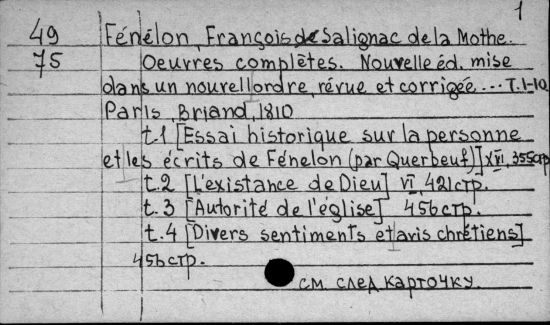 1
49 Fénélon, François de Salignac de la Mothe.
75 Oeuvres complètes. Nouvelle éd. mise
dans un nouvel ordre, révue et corrigée... T.1-10
Paris, Briand, 1810
t.1 [Essai historique sur la personne
et les écrits de Fénelon (par Querbeuf)] XVI, 355 стр
t.2 [L'existance de Dieu] VI, 421 стр.
t.3 [Autorité de l'église] 456 стр.
t.4 [Divers sentiments et avis chrétiens]
456 стр.
см. след карточку.